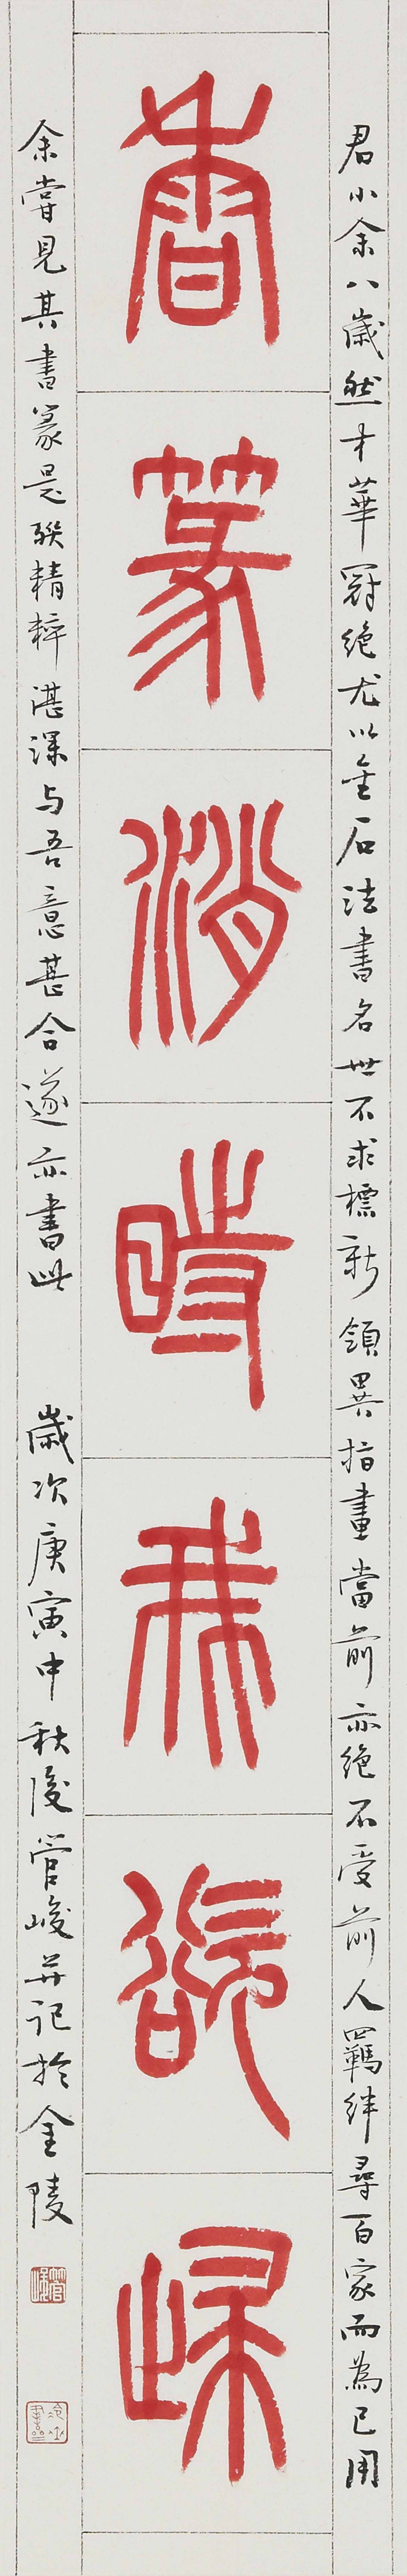 君小余八歲然才華冠絕尤以金石法書名世不求標新領異指畫當前亦絕不受前人羈絆尋百家而為己用
香篆消時我欲歸
余嘗見其書篆是聯精粹湛深与吾意甚合遂亦書此 歲次庚寅中秋後管峻并記於金陵
管峻